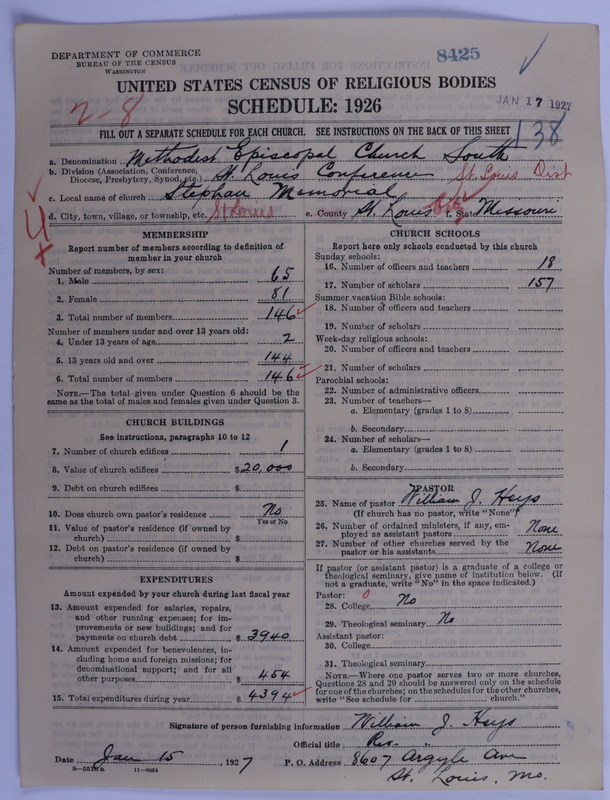 DEPARTMENT OF COMMERCE
BUREAU OF THE CENSUS
WASHINGTON
8425
UNITED STATES CENSUS OF RELIGIOUS BODIES
SCHEDULE: 1926
2-8
JAN 17 1927
FILL OUT A SEPARATE SCHEDULE FOR EACH CHURCH. SEE INSTRUCTIONS ON THE BACK OF THIS SHEET
138
a. Denomination Methodist Episcopal Church South
b. Division (Association, Conference, Diocese, Presbytery, Synod, etc.) St. Louis Conference St. Louis Dist
c. Local name of church Stephan Memorial
d. City, town, village, or township, etc. St Louis e. County St. Louis f. State Missouri
4
MEMBERSHIP
Report number of members according to definition of member in your church
Number of members, by sex:
1. Male 65
2. Female 81
3. Total number of members 146
Number of members under and over 13 years old:
4. Under 13 years of age 2
5. 13 years old and over 144
6. Total number of members 146
NOTE.—The total given under Question 6 should be the same as the total of males and females given under Question 3.
CHURCH BUILDINGS
See instructions, paragraphs 10 to 12
7. Number of church edifices 1
8. Value of church edifices $20,000
9. Debt on church edifices $
10. Does church own pastor's residence No
Yes or No
11. Value of pastor's residence (if owned by church) $
12. Debt on pastor's residence (if owned by church) $
EXPENDITURES
Amount expended by your church during last fiscal year
13. Amount expended for salaries, repairs, and other running expenses; for improvements or new buildings; and for payments on church debt $ 3940
14. Amount expended for benevolences, including home and foreign missions; for denominational support; and for all other purposes $ 454
15. Total expenditures during year $ 4394
CHURCH SCHOOLS
Report here only schools conducted by this church
Sunday schools:
16. Number of officers and teachers 18
17. Number of scholars 157
Summer vacation Bible schools:
18. Number of officers and teachers
19. Number of scholars
Week-day religious schools:
20. Number of officers and teachers
21. Number of scholars
Parochial schools:
22. Number of administrative officers
23. Number of teachers—
a. Elementary (grades 1 to 8)
b. Secondary
24. Number of scholars—
a. Elementary (grades 1 to 8)
b. Secondary
PASTOR
25. Name of pastor William J. Heys
(If church has no pastor, write "None")
26. Number of ordained ministers, if any, employed as assistant pastors None
27. Number of other churches served by the pastor or his assistants None
If pastor (or assistant pastor) is a graduate of a college or theological seminary, give name of institution below. (If not a graduate, write "No" in the space indicated.)
Pastor: 0
28. College No
29. Theological seminary No
Assistant pastor:
30. College
31. Theological seminary
NOTE.—Where one pastor serves two or more churches, Questions 28 and 29 should be answered only on the schedule for one of the churches; on the schedules for the other churches, write "See schedule for church."
Signature of person furnishing information William J. Heys
Official title Rev. "
Date Jan 15 1927 P. O. Address 8607 Argyle Ave
St. Louis, Mo.
11-9034